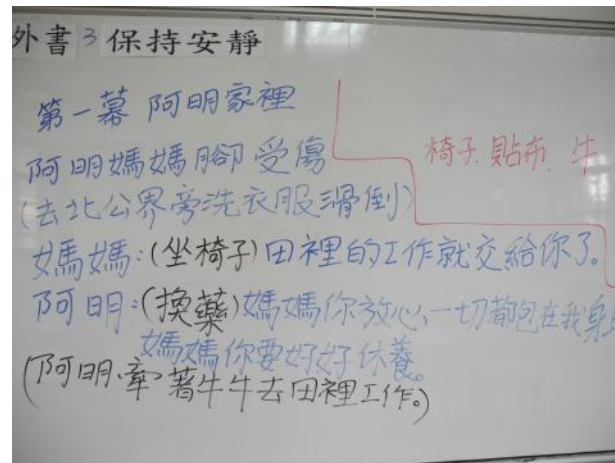 外書 3 保持安靜
第一幕 阿明家裡
椅子、貼布、牛
阿明媽媽腳受傷
(去北公界旁洗衣服滑倒)
媽媽:(坐椅子)田裡的工作就交給你了。
阿明:(換藥)媽媽你放心,一切都包在我身
媽媽你要好好休養。
(阿明牽著牛牛去田裡工作。)